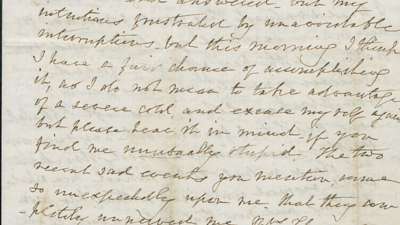 and answered, but my
intentions frustrated by unavoidable
interruptions, but this morning I think
I have a fair chance of accomplishing
it, as I do not mean to take advantage
of a severe cold, and excuse myself again
but please bear it in mind, if you
find me unusually stupid. The two
recent sad events you mention, came
so unexpectedly upon me, that they com
-pletely unnerved me. Mrs